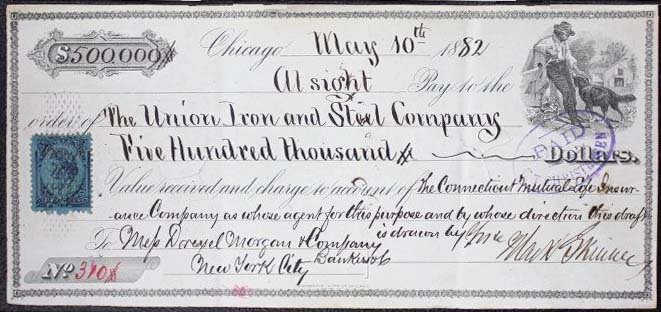 $500,000
Chicago May 10th 1882
At sight Pay to the
order of The Union Iron and Steel Company
Five Hundred thousand Dollars.
Value received and charge to account of The Connecticut Mutual Life Insur-
ance Company as whose agent for this purpose and by whose direction this draft
is drawn by
To Mess Drexel Morgan & Company
Bankers
New York City
Mark Skinner
No 310
PAID